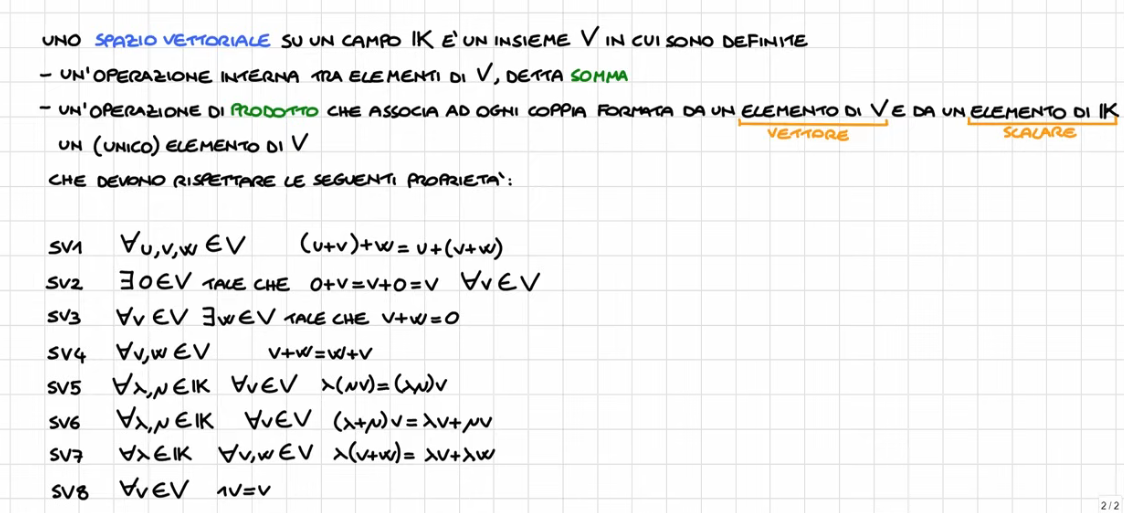 UNO SPAZIO VETTORIALE SU UN CAMPO IK E' UN INSIEME V IN CUI SONO DEFINITE
- UN'OPERAZIONE INTERNA TRA ELEMENTI DI V, DETTA SOMMA
- UN'OPERAZIONE DI PRODOTTO CHE ASSOCIA AD OGNI COPPIA FORMATA DA UN ELEMENTO DI V E DA UN ELEMENTO DI IK
VETTORE SCALARE
UN (UNICO) ELEMENTO DI V
CHE DEVONO RISPETTARE LE SEGUENTI PROPRIETA':
SV1 ∀u,v,w ∈ V (u+v)+w = u+(v+w)
SV2 ∃0∈V TALE CHE 0+v=v+0=v ∀v∈V
SV3 ∀v∈V ∃w∈V TALE CHE v+w=0
SV4 ∀v,w∈V v+w=w+v
SV5 ∀λ,μ∈IK ∀v∈V λ(μv)=(λμ)v
SV6 ∀λ,μ∈IK ∀v∈V (λ+μ)v=λv+μv
SV7 ∀λ∈IK ∀v,w∈V λ(v+w)= λv+λw
SV8 ∀v∈V 1v=v
2/2